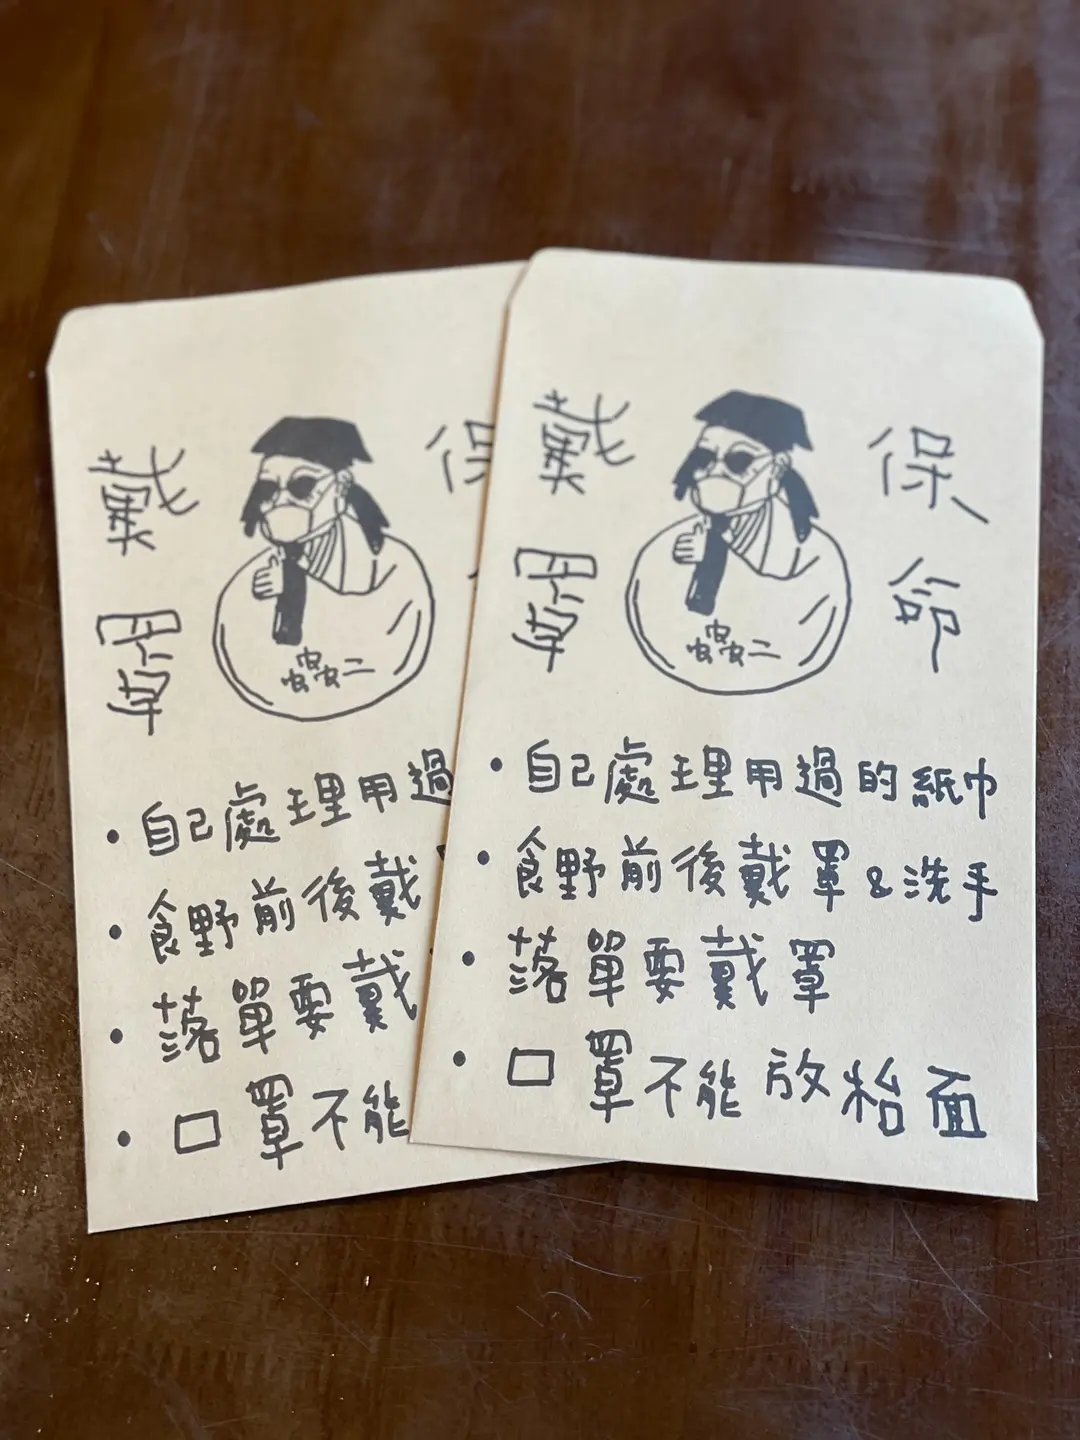 戴罩
保
蟲二
• 自己處理用過
• 食野前後戴
• 落單要戴
• 口罩不能
戴罩
保命
蟲二
• 自己處理用過的紙巾
• 食野前後戴罩&洗手
• 落單要戴罩
• 口罩不能放枱面